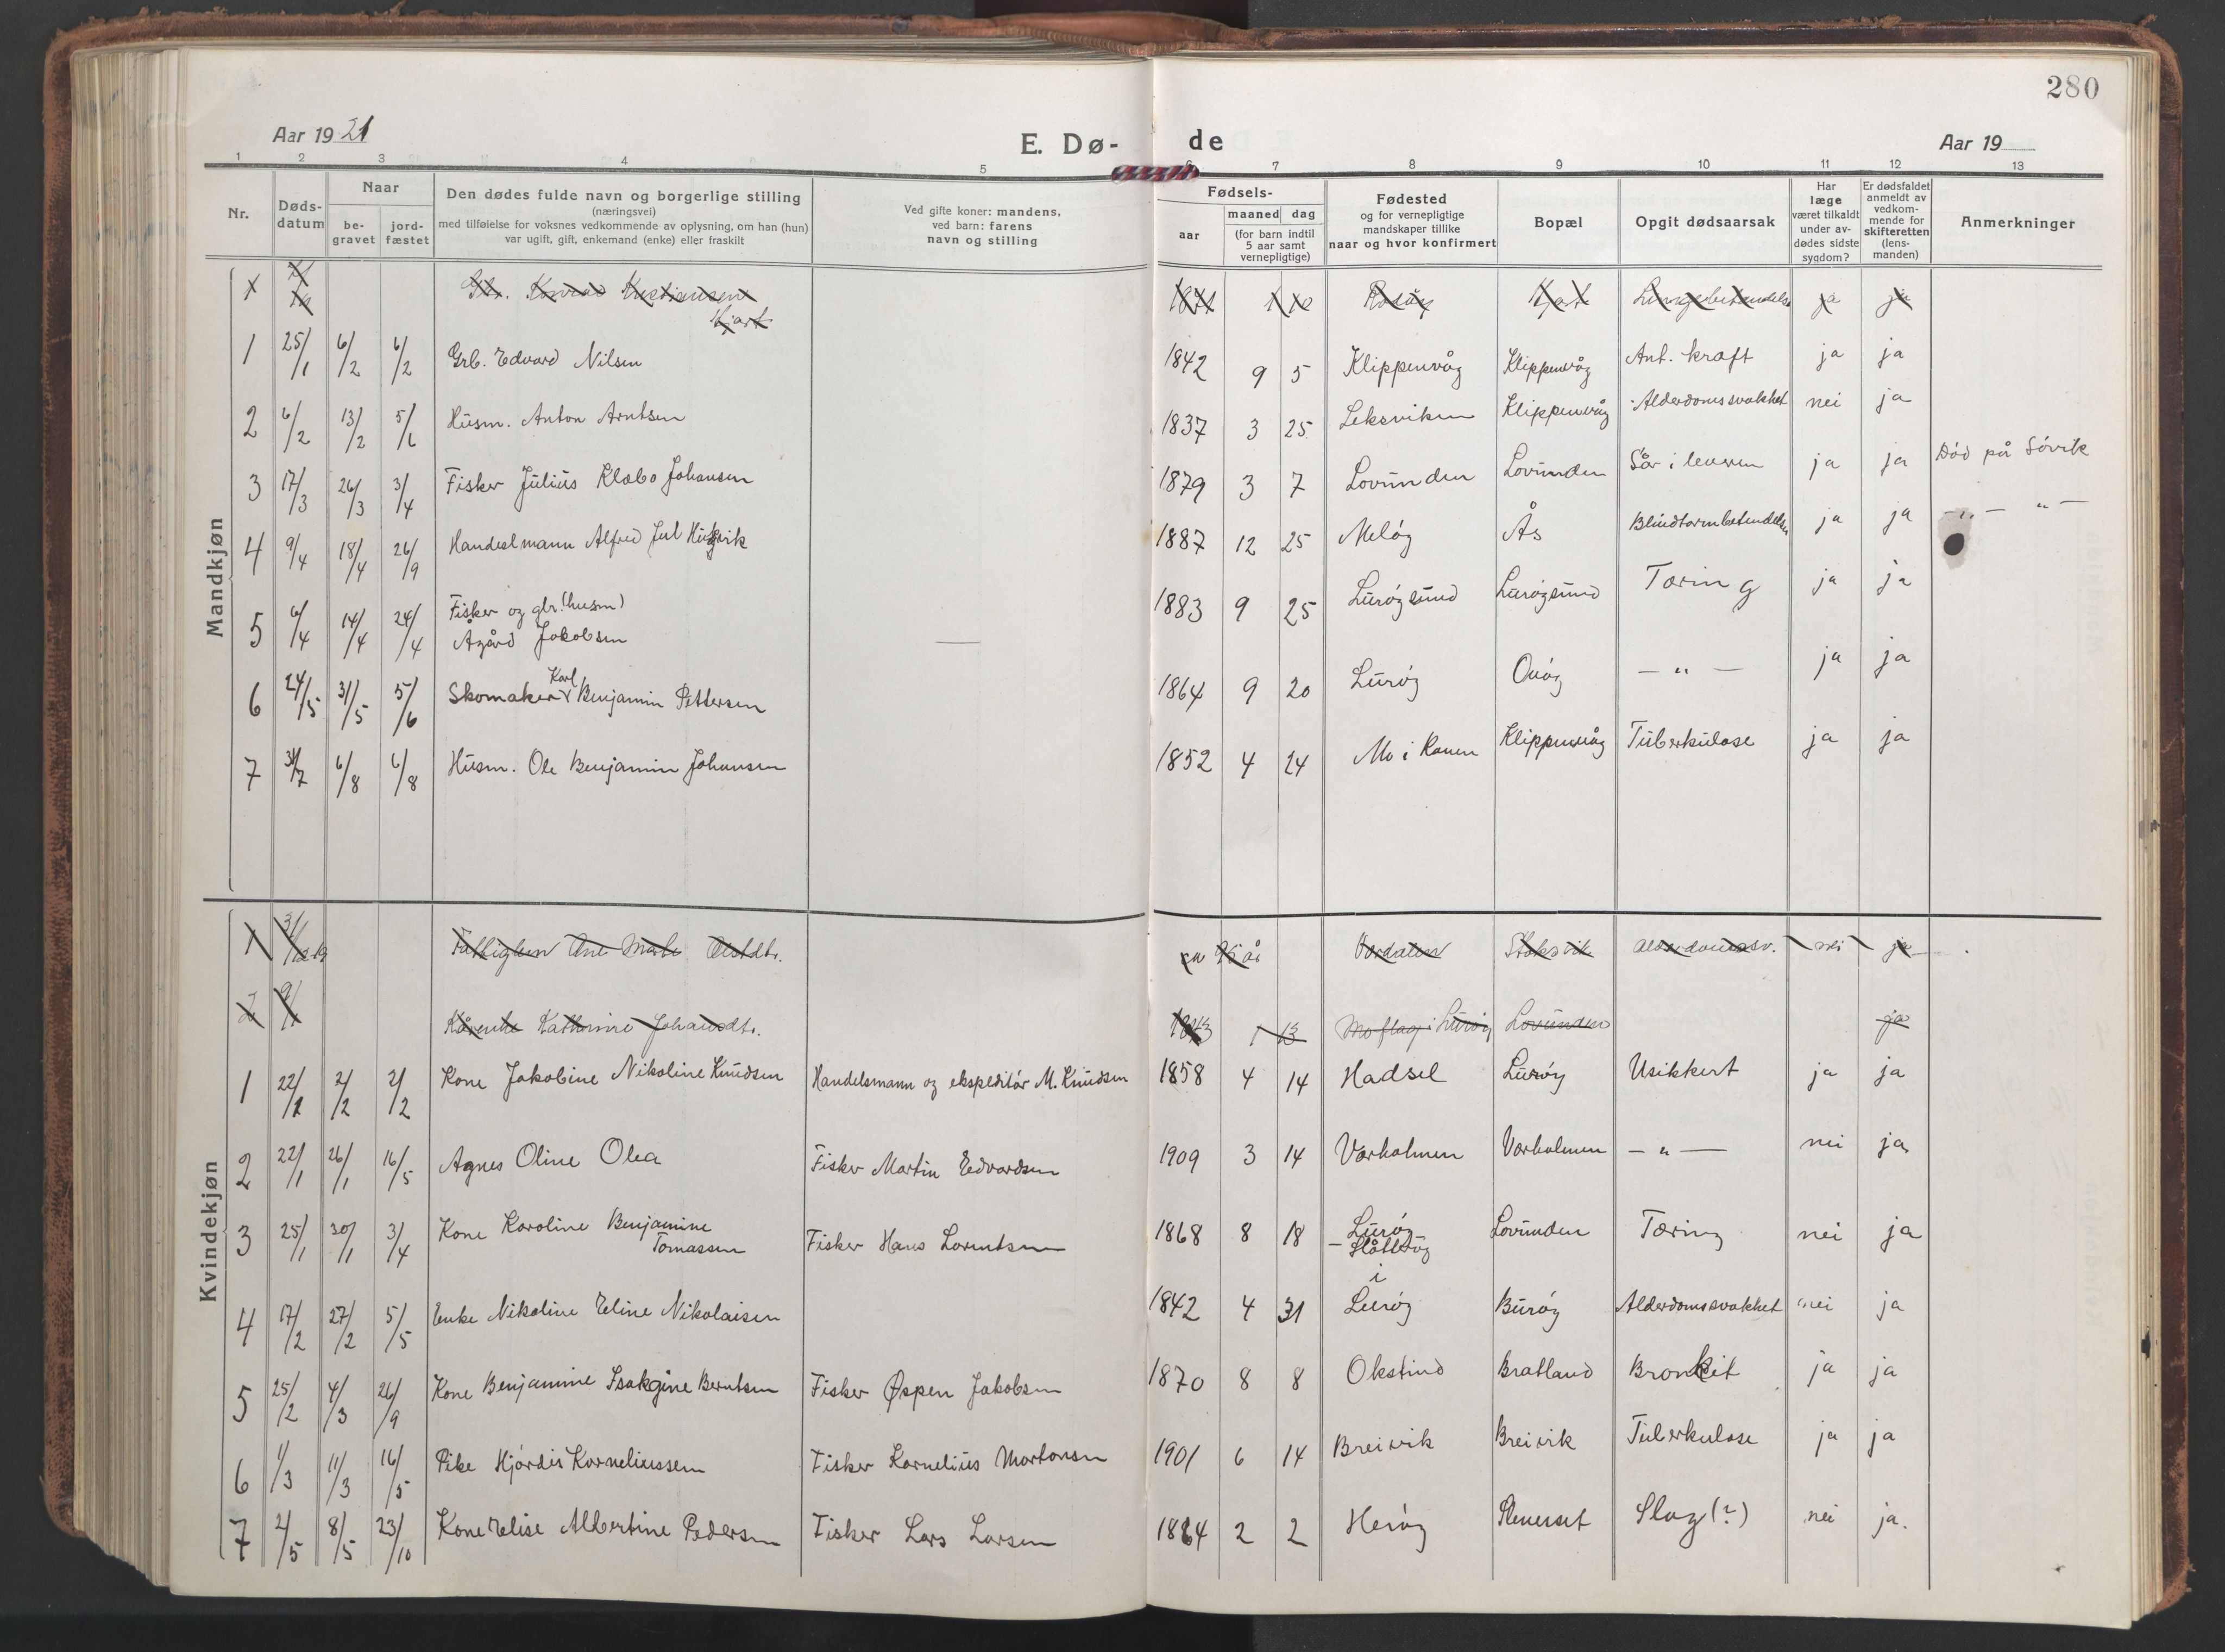 280
Aar 1921
E. Dø- de
Aar 19
1 2 3 4 5 6 7 8 9 10 11 12 13
Nr.
Døds-
datum
Naar
be-
gravet
jord-
fæstet
Den dødes fulde navn og borgerlige stilling
(næringsvei)
med tilføielse for voksnes vedkommende av oplysning, om han (hun)
var ugift, gift, enkemand (enke) eller fraskilt
Ved gifte koner: mandens,
ved barn: farens
navn og stilling
Fødsels-
aar
maaned dag
(for barn indtil
5 aar samt
vernepligtige)
Fødested
og for vernepligtige
mandskaper tillike
naar og hvor konfirmert
Bopæl
Opgit dødsaarsak
Har
læge
været tilkaldt
under av-
dødes sidste
sygdom?
Er dødsfaldet
anmeldt av
vedkom-
mende for
skifteretten
(lens-
manden)
Anmerkninger
Mandkjøn
Konrad Kristiansen ja ja
1 25/1 6/2 6/2 Grb. Edvard Nilsen 1842 9 5 Klippenvåg Klippenvåg Ant. kræft ja ja
2 6/2 13/2 5/6 Husm. Anton Arntsen 1837 3 25 Leksviken Klippenvåg Alderdomssvakhet nei ja
3 17/3 26/3 3/4 Fisker Julius Klæbo Johansen 1879 3 7 Lovunden Lovunden Sår i leveren ja ja Död på Sövik
4 9/4 18/4 26/9 Handelmann Alfred Jul 1887 12 25 Melöy Ås Blindtarmbetendelse ja ja -„- „-
5 6/4 14/4 24/4 Fisker og gbr. (husm)
Ågård Jakobsen — 1883 9 25 Luröysund Luröysund Tæring ja ja
6 24/5 31/5 5/6 Skomaker Karl Benjamin Pettersen 1864 9 20 Luröy Onöy — „ — ja ja
7 31/7 6/8 6/8 Husm. Ole Benjamin Johansen 1852 4 24 Mo i Ranen Klippenvåg Tuberkulose ja ja
Kvindekjøn
Ane Marta Olsdtr. Værdalen Stoksvik Alderdomssv. nei ja
Kårenke Kathrine Johansdtr. 1843 1 13 Luröy Lovunden ja
1 22/1 2/2 2/2 Kone Jakobine Nikoline Knudsen Handelsmann og ekspeditör M. Knudsen 1858 4 14 Hadsel Luröy Usikkert ja ja
2 22/1 26/1 16/5 Agnes Oline Olea Fisker Martin Edvardsen 1909 3 14 Varholmen Varholmen — „ — nei ja
3 25/1 30/1 3/4 Kone Karoline Benjamine
Tomassen Fisker Hans Lorentsen 1868 8 18 Luröy Lovunden Tæring nei ja
4 17/2 27/2 5/5 Enke Nikoline Eline Nikolaisen 1842 4 31 i
Luröy Buröy Alderdomssvakhet nei ja
5 25/2 4/3 26/9 Kone Benjamine Isakgine Berntsen Fisker Øspen Jakobsen 1870 8 8 Okstind Bratland Bronkit ja ja
6 1/3 11/3 16/5 Pike Hjördis Korneliussen Fisker Kornelius Mortensen 1901 6 14 Breivik Breivik Tuberkulose ja ja
7 2/5 8/5 23/10 Kone Elise Albertine Pedersen Fisker Lars Larsen 1864 2 2 Heröy Stenerset Slag (?) nei ja.